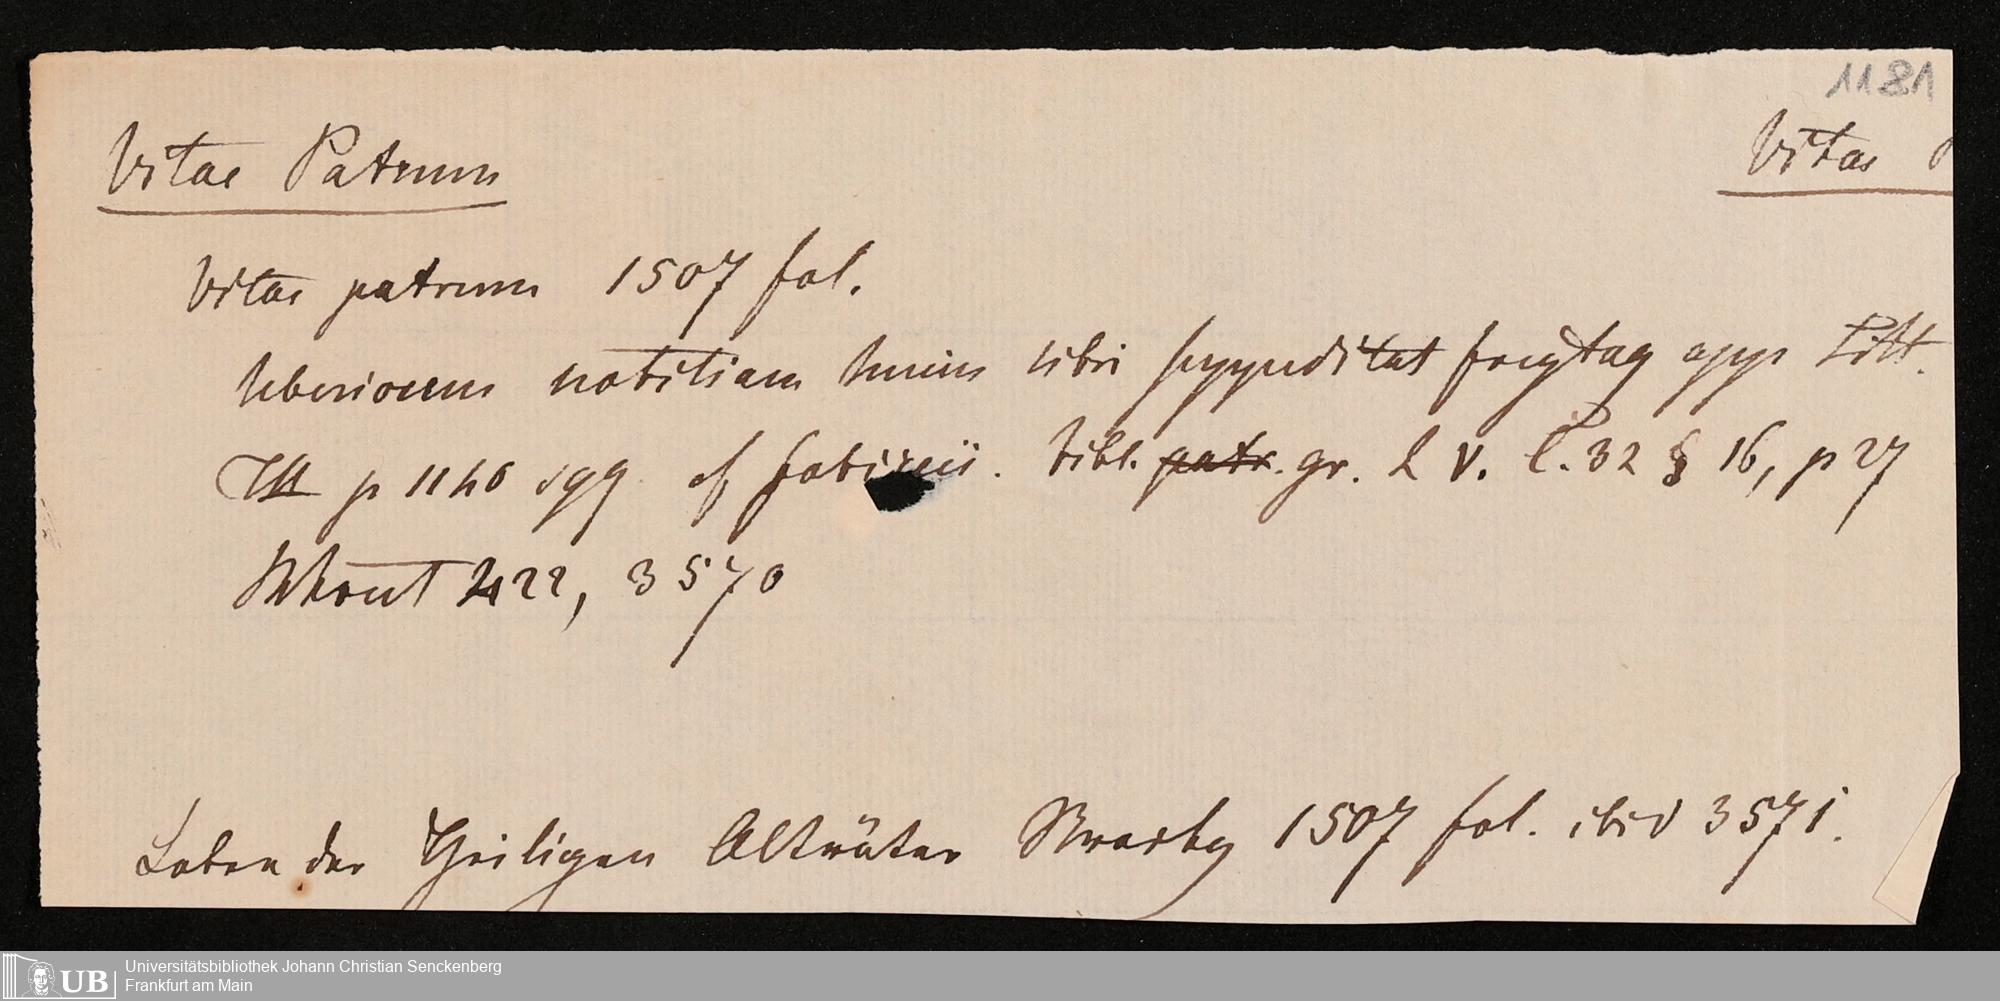 1181
Vitae Patrum
Vitas P
Vitas patrum 1507 fol.
Uberiorem notitiam huius libri suppeditat Freytag app. Litt.
III p 1140 sqq. cf Fabricii. bibl. patr. gr. L V. C. 32 § 16, p 27
422, 3570
Leben der Heiligen Altväter 1507 fol. ibid 3571.
Universitätsbibliothek Johann Christian Senckenberg
Frankfurt am Main
UB